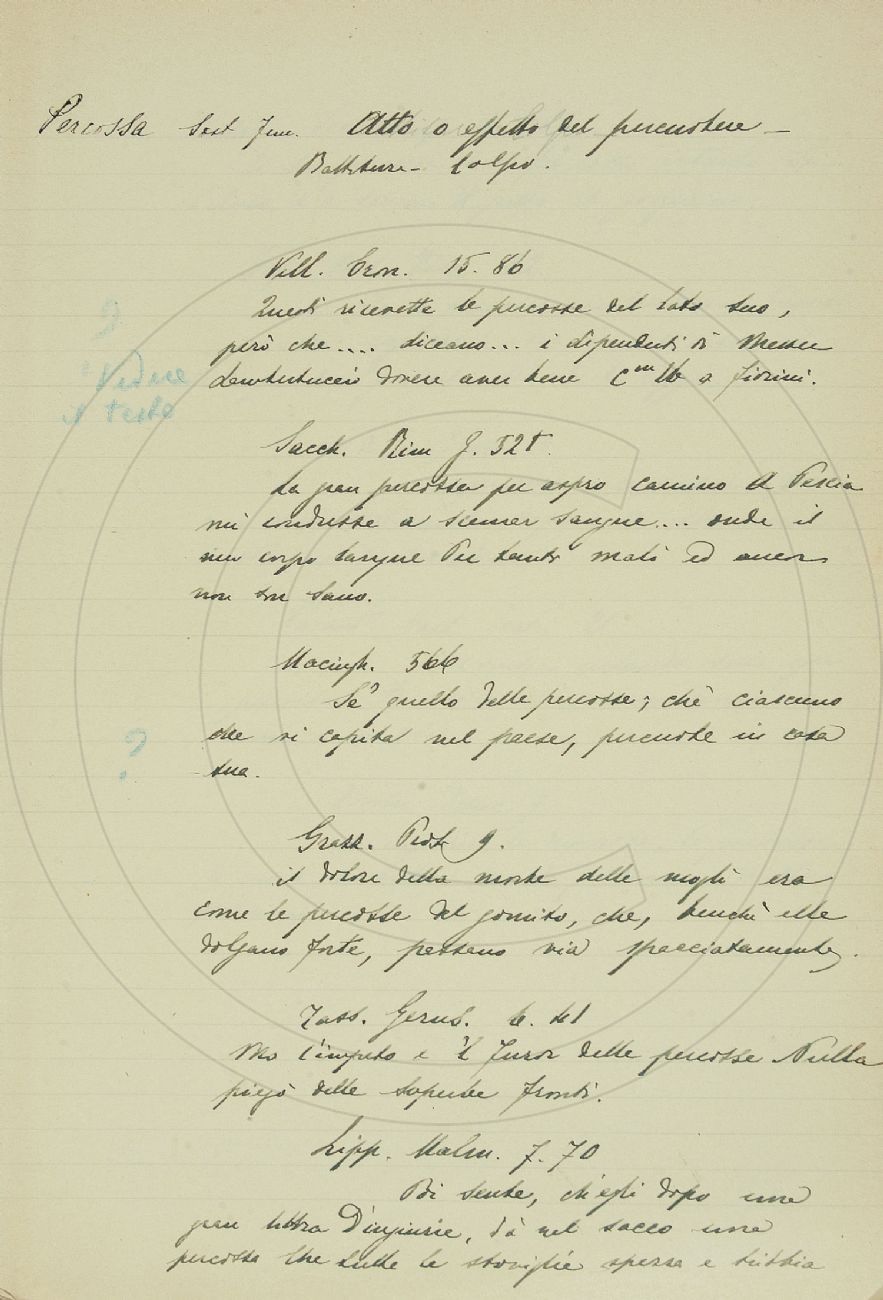 Percossa Sost. fem. Atto o effetto del percuotere —
Battitura - Colpo.
Vill. Cron. 15. 86
Questi ricevette le percosse del lato suo,
però che .... diceano ... i dipendenti di Messer
dovere aver bene a fiorini.
?
Vedere
il testo
Sacch. Rim f. 52t.
La gran percossa per aspro camino A Pescia
mi condusse a scemar sangue .... onde il
mio corpo langue Per tanti mali ed ancor
non son sano.
Macingh. 566
Se' quello delle percosse; chè ciascuno
che vi capita nel paese, percuote in casa
tua.
?
Grazz. 9.
il dolore della morte delle mogli era
come le percosse del gomito, che, benchè elle
dolgano forte, passano via spacciatamente.
Tass. Gerus. 6. 41
Ma l'impeto e 'l furor delle percosse Nulla
piegò delle superbe fronti.
Lipp. Malm. 7. 70
Poi sente, ch'egli dopo una
gran d'ingiurie, dà nel sacco una
percossa Che tutte le stoviglie spezza e tritia